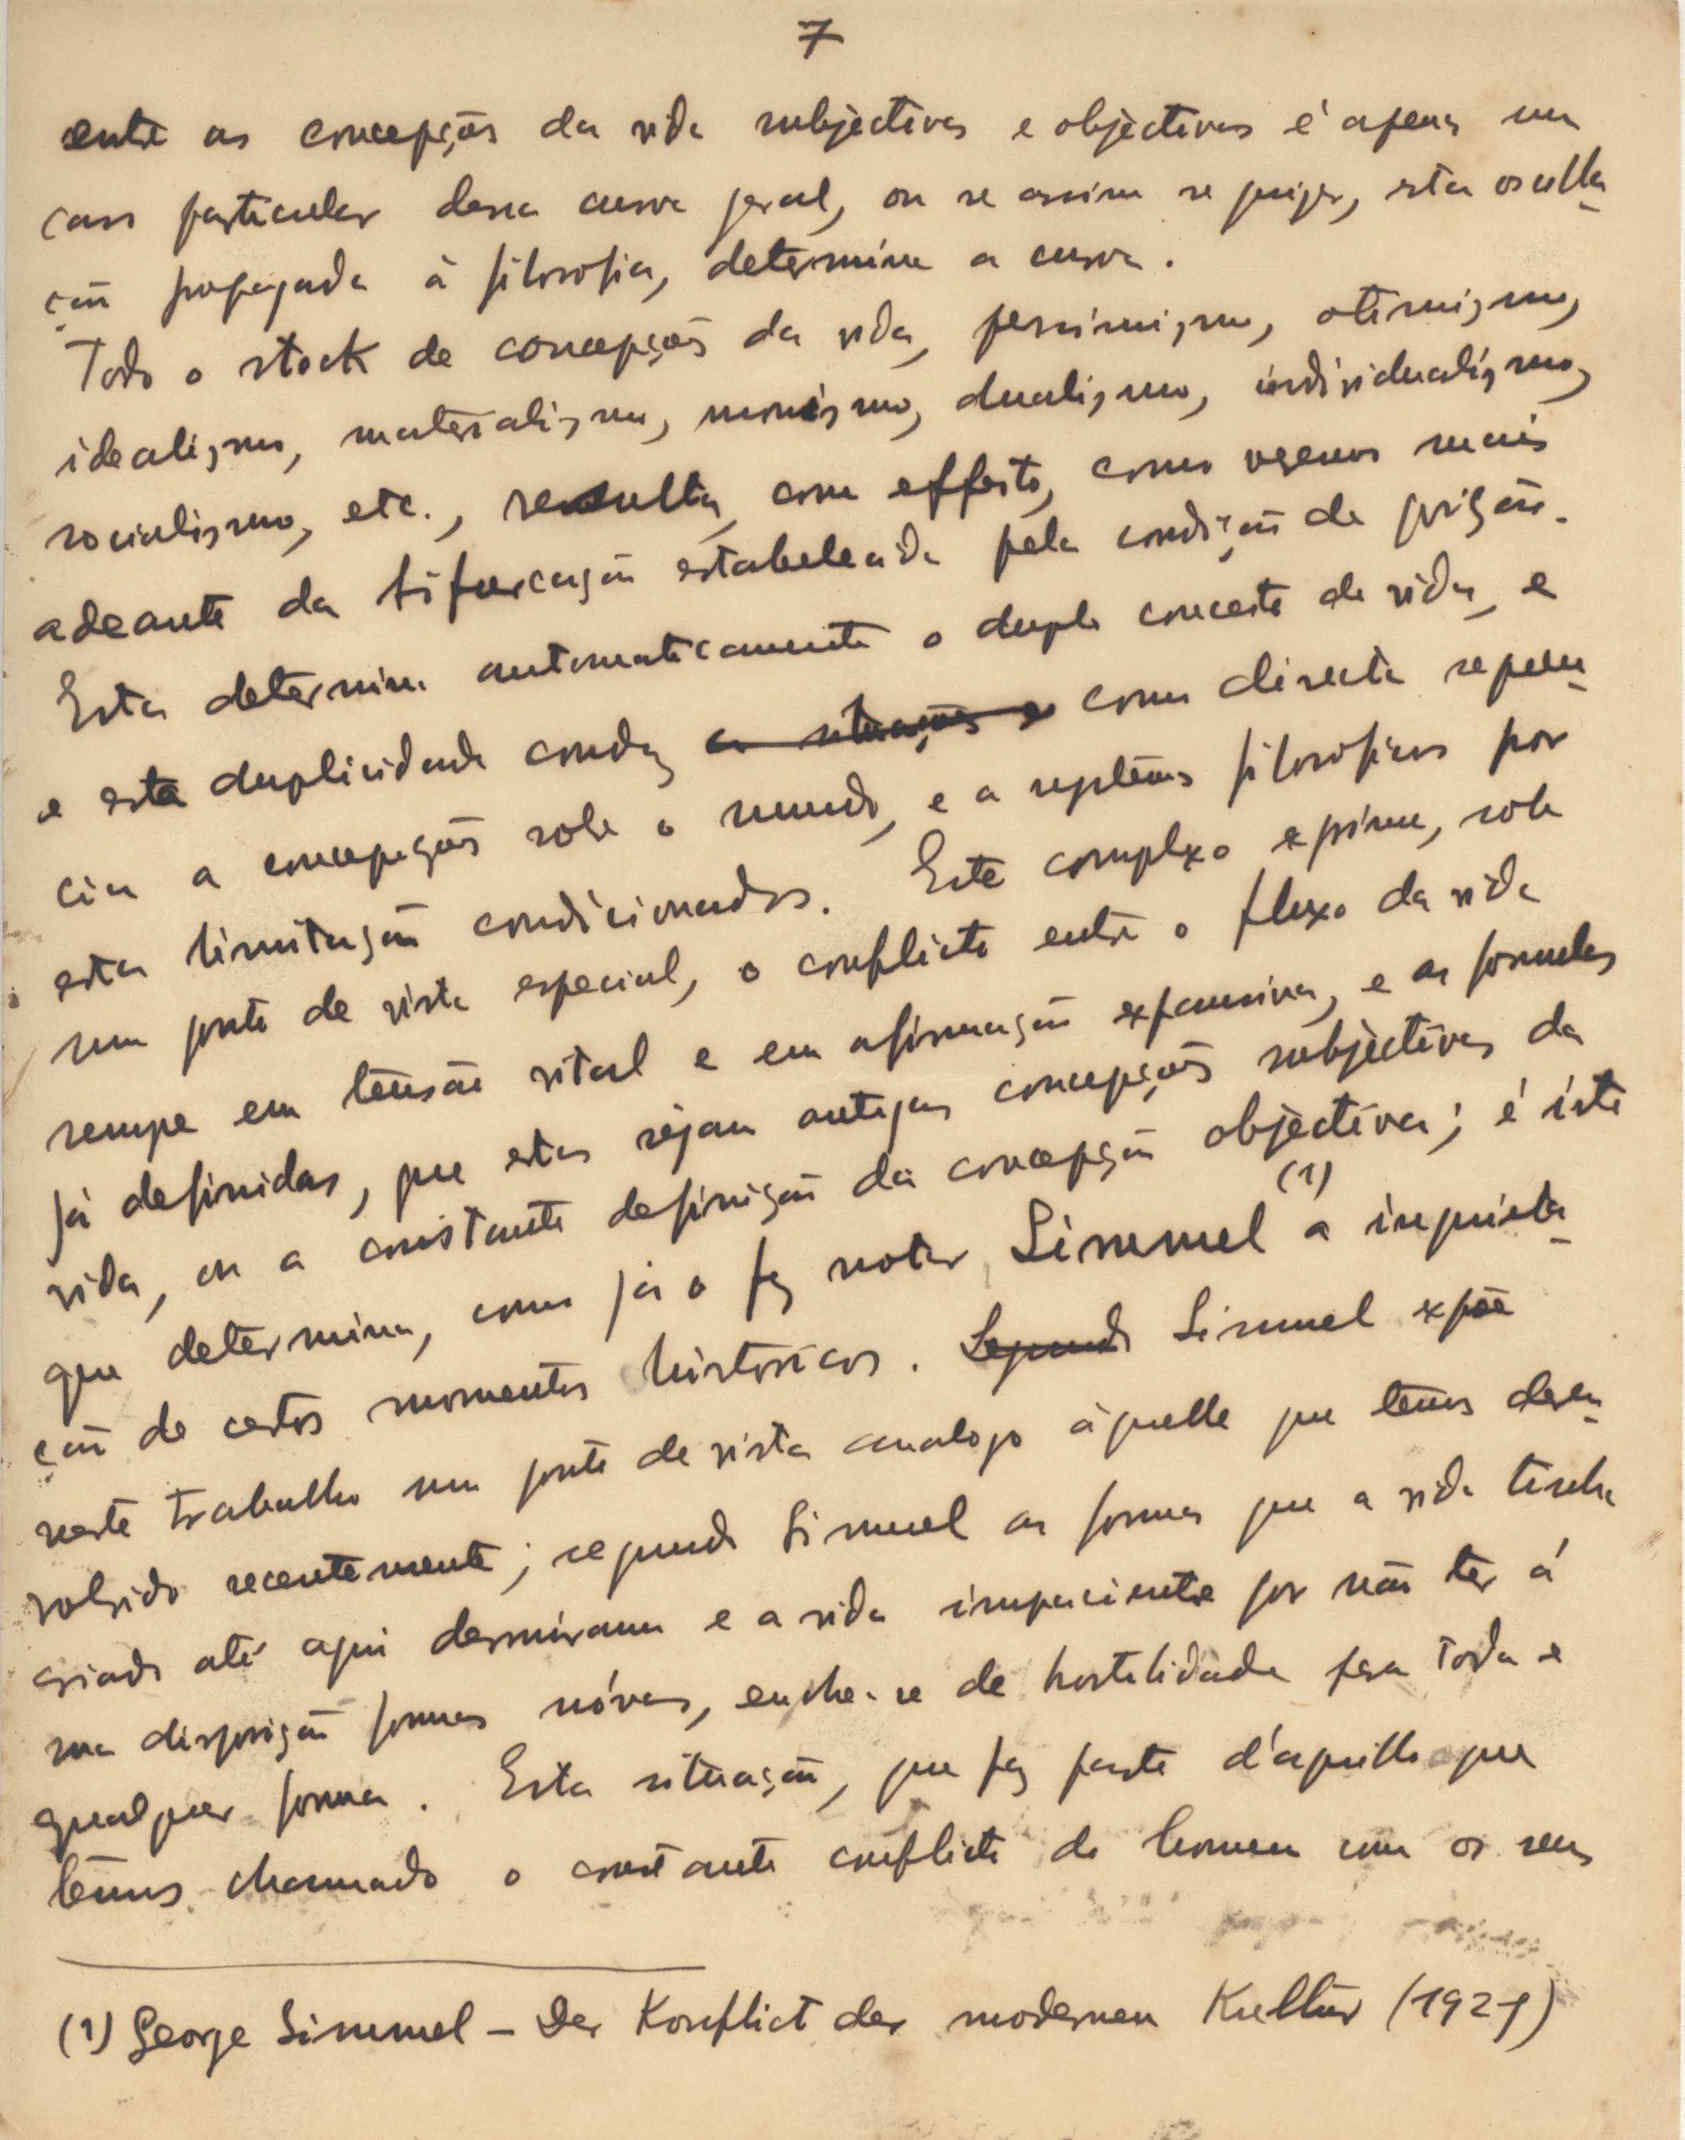 7
entre as concepções da vida subjectivas e objectivas é apenas um
caso particular dessa curva geral, ou se assim se quizer, esta oscilla-
ção propagada à filosofia, determina a curva.
Todo o stock de concepções da vida, pessimismo, otimismo,
idealismo, materialismo, monismo, dualismo, individualismo,
socialismo, etc., resulta, com effeito, como veremos mais
adeante da bifurcação estabelecida pela condição de prizão.
Esta determina automaticamente o duplo conceito de vida, e
e esta duplicidade conduz a situações e como directa repercu-
cia a concepções sobre o mundo, e a systemas filosoficos por
esta limitação condicionados. Este complexo exprime, sob
um ponto de vista especial, o conflicto entre o fluxo da vida
sempre em tensão vital e em afirmação expansiva, e as formulas
já definidas, que estas sejam antigas concepções subjectivas da
vida, ou a constante definição da concepção objectiva; é isto
que determina, como já o fez notar, Simmel (1) a inquieta-
ção de certos momentos historicos. Segundo Simmel expõe
neste trabalho um ponto de vista analogo àquelle que temos desen-
volvido recentemente; segundo Simmel as formas que a vida tinha
criado até aqui dominaram e a vida impaciente por não ter á
sua disposição formas nóvas, enche-se de hostilidade para toda e
qualquer forma. Esta situação, que faz parte d'aquillo que
temos chamado o constante conflicto do homem com os seus
(1) George Simmel – Der Konflict der modernen Kultur (1921)